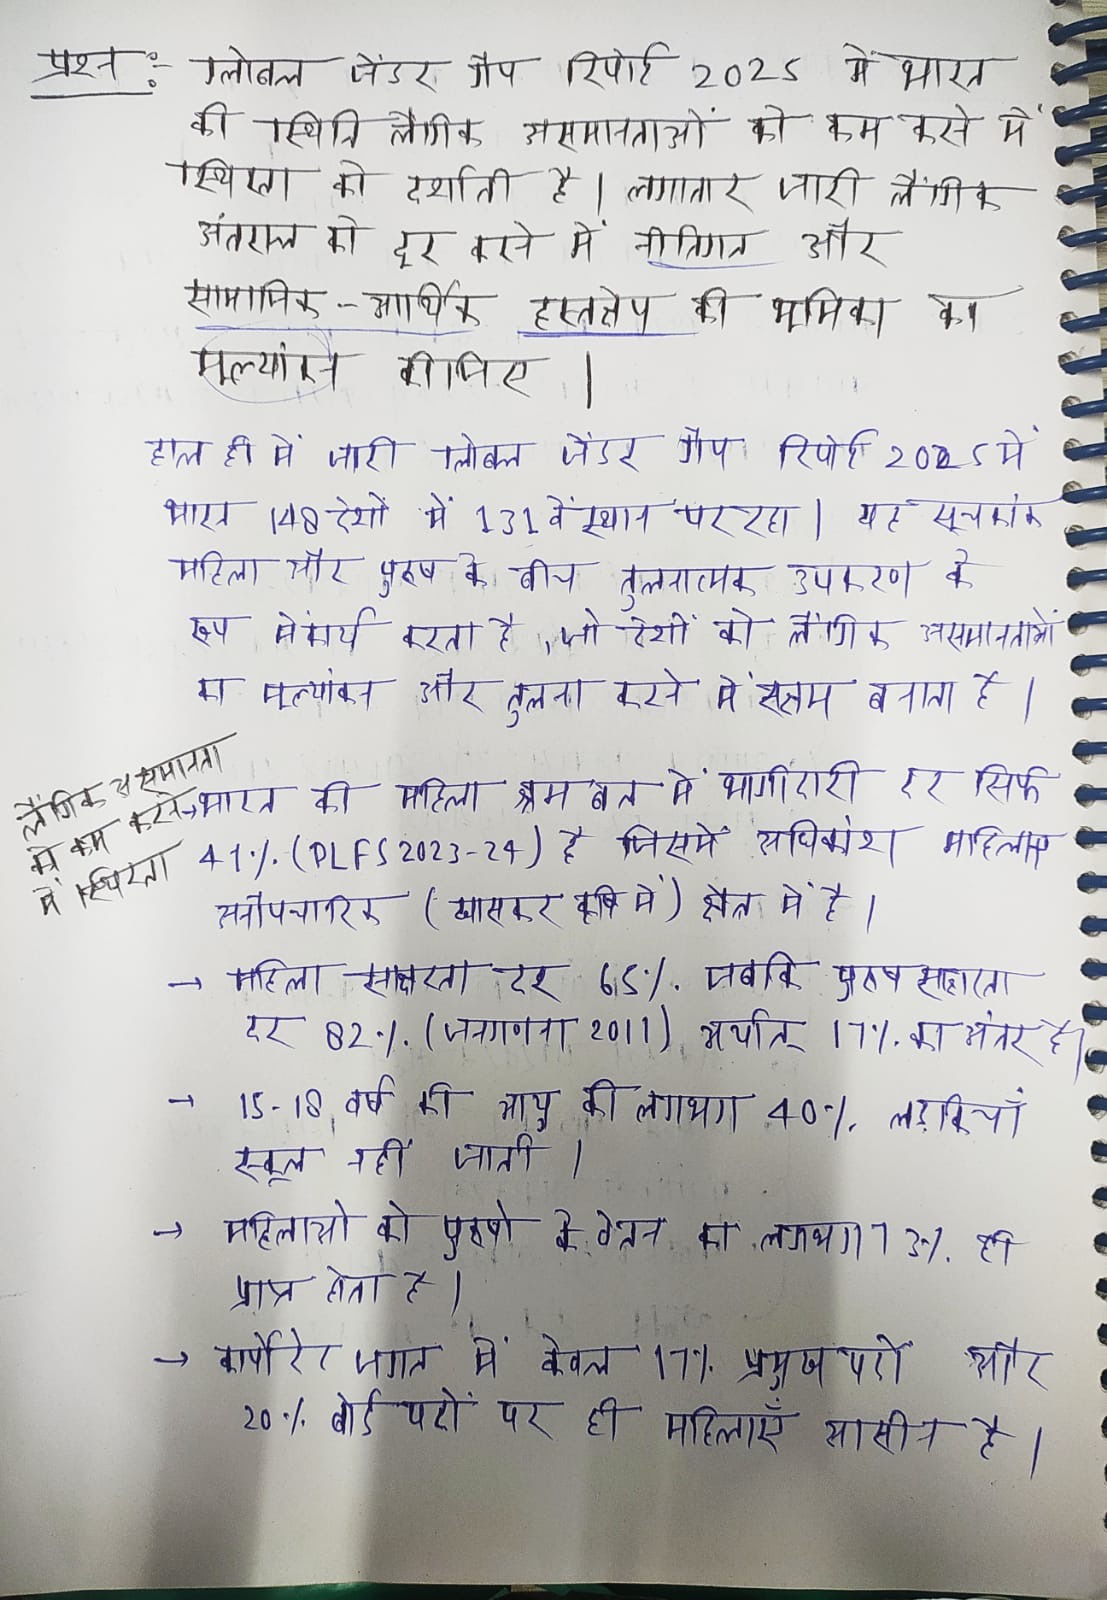 प्रश्न :- ग्लोबल जेंडर गैप रिपोर्ट 2025 में भारत
की स्थिति लैंगिक असमानताओं को कम करने में
स्थिरता को दर्शाती है। लगातार जारी लैंगिक
अंतराल को दूर करने में नीतिगत और
सामाजिक-आर्थिक हस्तक्षेप की भूमिका का
मूल्यांकन कीजिए।
हाल ही में जारी ग्लोबल जेंडर गैप रिपोर्ट 2025 में
भारत 148 देशों में 131 वें स्थान पर रहा। यह सूचकांक
महिला और पुरुष के बीच तुलनात्मक उपकरण के
रूप में कार्य करता है, जो देशों को लैंगिक असमानताओं
का मूल्यांकन और तुलना करने में सक्षम बनाता है।
लैंगिक असमानता
को कम करने
में स्थिरता
→ भारत की महिला श्रम बल में भागीदारी दर सिर्फ
41%. (PLFS 2023-24) है जिसमें अधिकांश महिलाएं
अनौपचारिक (खासकर कृषि में) क्षेत्र में है।
→ महिला साक्षरता दर 65%. जबकि पुरुष साक्षरता
दर 82%. (जनगणना 2011) अर्थात् 17%. का अंतर है।
→ 15-18 वर्ष की आयु की लगभग 40%. लड़कियाँ
स्कूल नहीं जाती।
→ महिलाओ को पुरुषो के वेतन का लगभग 73%. ही
प्राप्त होता है।
→ कार्पोरेट जगत में केवल 17%. प्रमुख पदों और
20%. बोर्ड पदों पर ही महिलाएँ आसीन है।